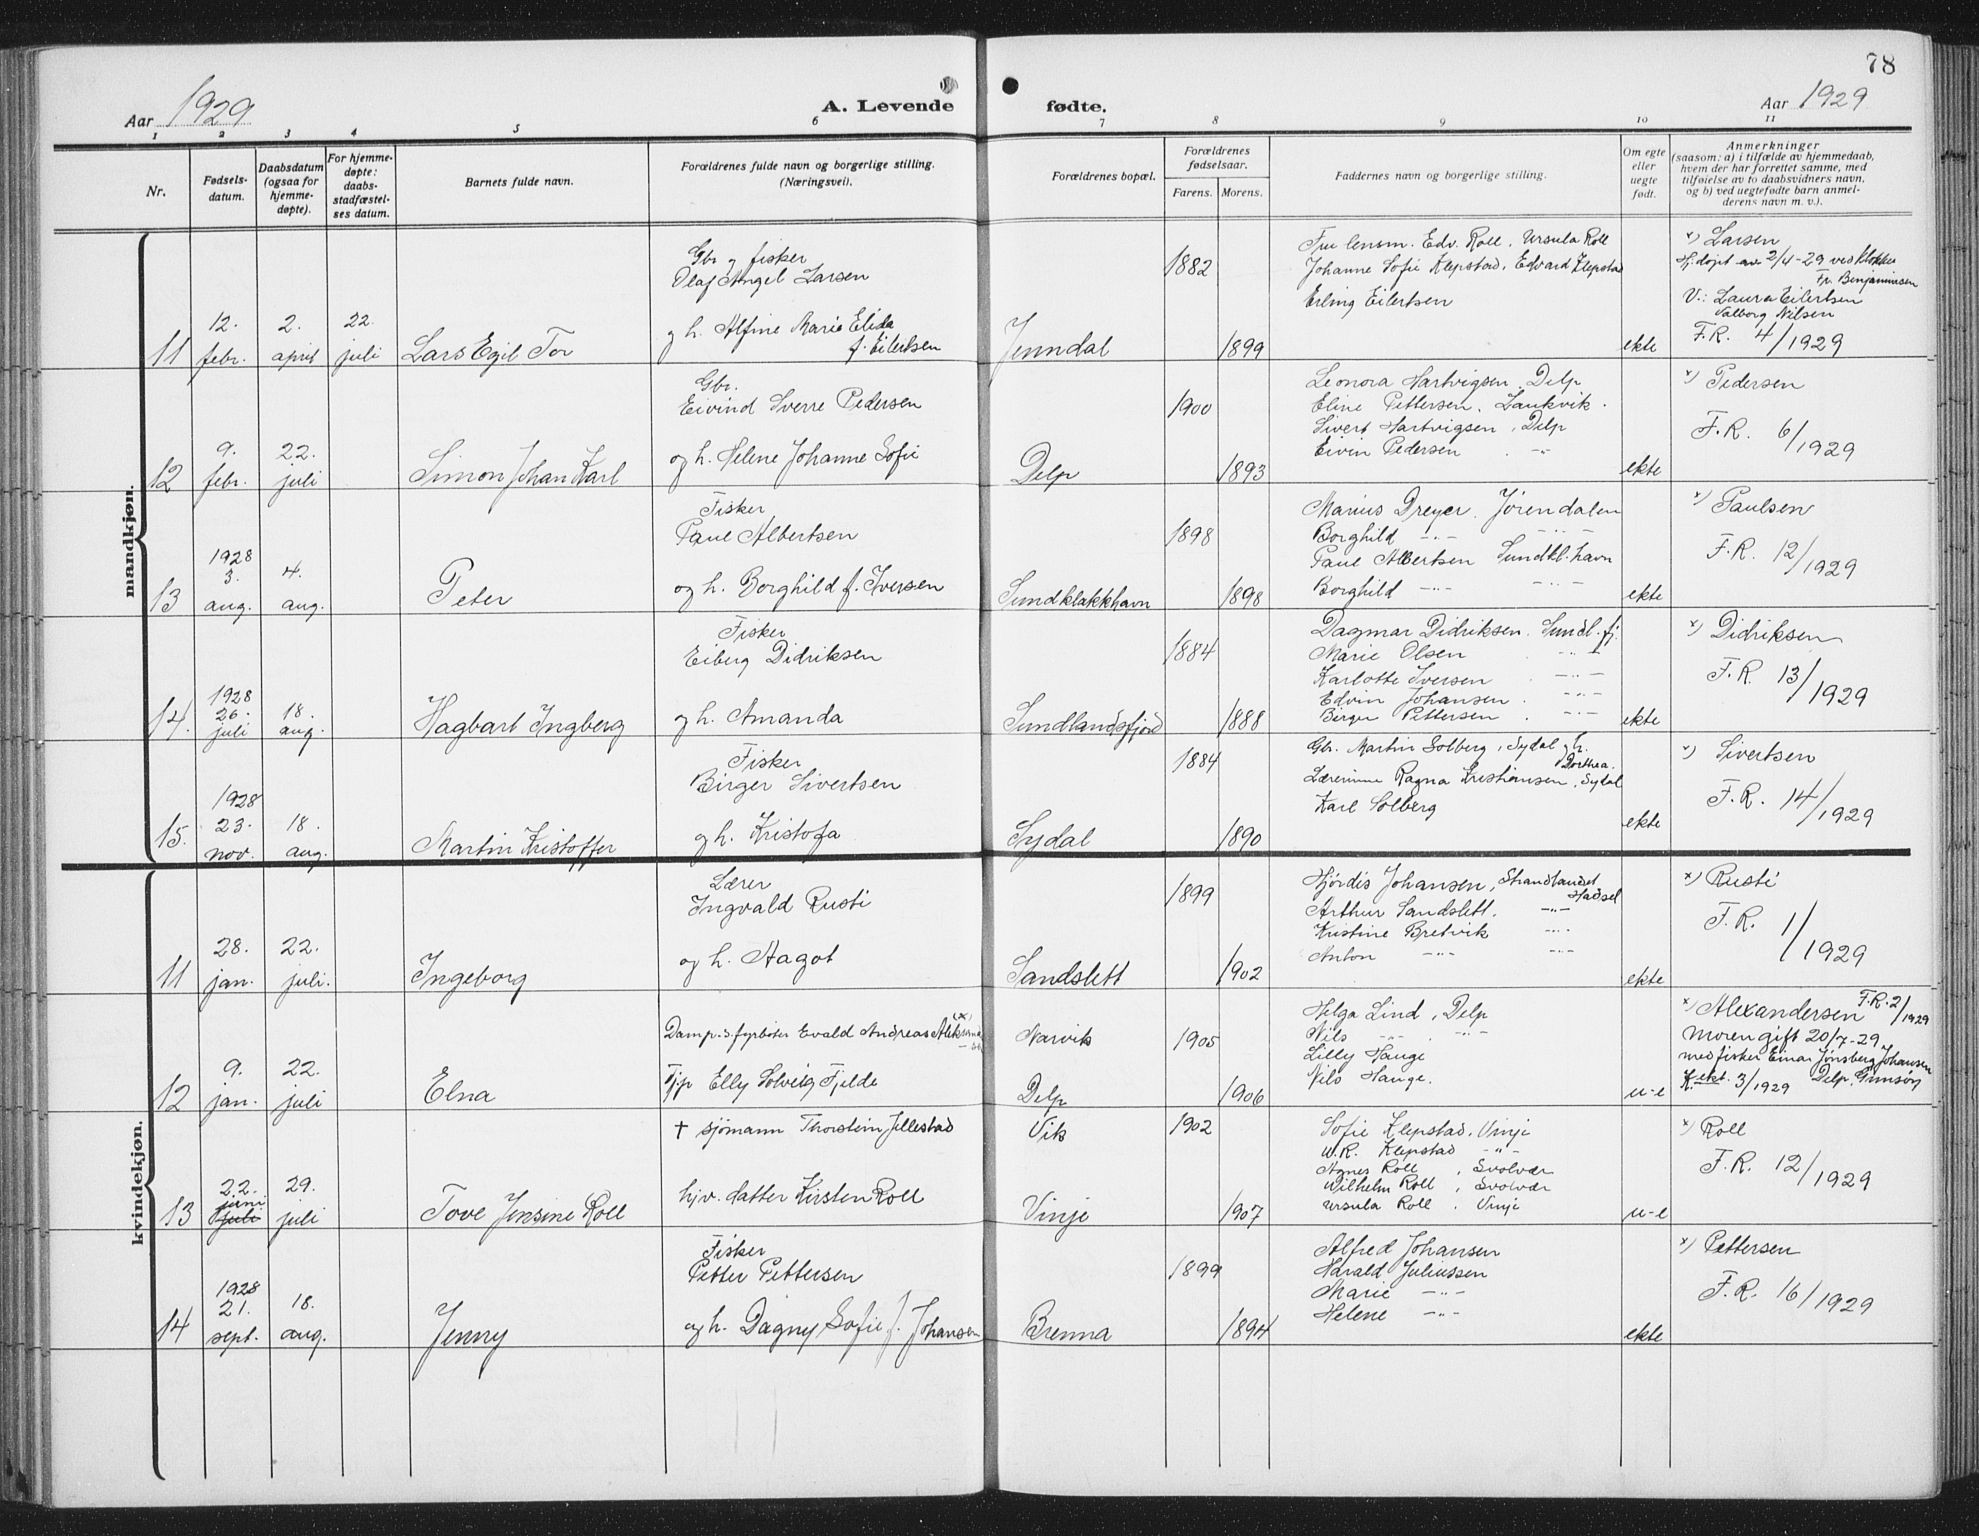 78
Aar 1929
A. Levende fødte.
Aar 1929
1 2 3 4 5 6 7 8 9 10 11
Nr.
Fødsels-
datum.
Daabsdatum
(ogsaa for
hjemme-
døpte).
For hjemme-
døpte:
daabs-
stadfæstel-
ses datum.
Barnets fulde navn.
Forældrenes fulde navn og borgerlige stilling.
(Næringsvei).
Forældrenes bopæl.
Forældrenes
fødselsaar.
Farens. Morens.
Faddernes navn og borgerlige stilling.
Om egte
eller
uegte
født.
Anmerkninger
(saasom: a) i tilfælde av hjemmedaab,
hvem der har forrettet samme, med
tilføielse av to daabsvidners navn,
og b) ved uegtefødte barn anmel-
derens navn m. v.).
mandkjøn.
11
12.
febr.
2.
april
22.
juli
Lars Egil Tor
Gbr og fisker
Olaf Angel Larsen
og h. Alfine Marie Elida
f. Eilertsen
Jenndal
1882
1899
Fru lensm. Edv. Roll, Ursula Roll
Johanne Sofie Klepstad, Edvard Klepstad
Erling Eilertsen
ekte
x) Larsen
Hj. døpt av 2/4-29 ved klokker
Fr. Benjaminsen
V.: Laura Eilertsen
Valborg Nilsen
F.R. 4/1929
12
9.
febr.
22.
juli
Simon Johan Karl
Gbr.
Eivind Sverre Pedersen
og h. Helene Johanne Sofie
Delp
1900
1893
Leonora Hartvigsen, Delp
Eline Pettersen, Laukvik.
Sivert Hartvigsen, Delp
Eivin Pedersen -"-
ekte
x) Pedersen
F.R. 6/1929
13
1928
3.
aug.
4.
aug.
Peter
Fisker
Paul Albertsen
og h. Borghild f. Iversen
Sundklakkhavn
1898
1898
Marius Dreyer, Jørendalen
Borghild -"- -"-
Paul Albertsen Sundkl.havn
Borghild -"- -"-
ekte
x) Paulsen
F.R. 12/1929
14.
1928
26.
juli
18.
aug.
Hagbart Ingberg
Fisker
Eiberg Didriksen
og h. Amanda
Sundlandsfjord
1884
1888
Dagmar Didriksen, Sundl.fj.
Marie Olsen -"-
Karlotte Iversen -"-
Edvin Johansen -"-
Birger Pettersen -"-
ekte
x) Didriksen
F.R 13/1929
15.
1928
23.
nov.
18.
aug.
Martin Kristoffer
Fisker
Birger Sivertsen
og h. Kristofa
Sydal
1884
1890
Gbr. Martin Solberg, Sydal og h.
Dorthea.
Lærerinne Ragna Kristiansen, Sydal
Karl Solberg
ekte
x) Sivertsen
F.R. 14/1929
kvindekjøn.
11
28.
jan.
22.
juli.
Ingeborg
Lærer
Ingvald Rusti
og h. Aagot
Sandslett
1899
1902
Hjørdis Johansen, Strandlandet
Hadsel
Arthur Sandslett. -"-
Kristine Bretvik -"-
Anton -"- -"-
ekte
x) Rusti
F.R. 1/1929
12
9.
jan.
22.
juli
Elna
Damp.s.fyrbøter Evald Andreas
Tjp Elly Solveig Fjelde
Narvik
Delp
1905
1906
Helga Lind, Delp
Nils -"- -"-
Lilly Hauge
Nils Hauge.
u-e
x) Alexandersen F.R. 2/1929
Moren gift 20/7-29
med fisker Einar Jønsberg Johansen
K.ekt. 3/1929 Delp, Gimsøy
13
22.
juni
juli
29.
juli
Tove Jensine Roll
† sjømann Thorstein Jellestad
hjv. datter Kirsten Roll
Vik
Vinje
1902
1907
Sofie Klepstad, Vinje
W.R. Klepstad -"-
Agnes Roll, Svolvær
Wilhelm Roll, Svolvær
Ursula Roll, Vinje
u-e
x) Roll
F.R. 12/1929
14
1928
21.
sept.
18.
aug.
Jenny
Fisker
Petter Pettersen
og h. Dagny Sofie f. Johansen
Brenna
1899
1894
Alfred Johansen
Harald Juliussen
Marie -"-
Helene -"-
ekte
x) Pettersen
F.R. 16/1929